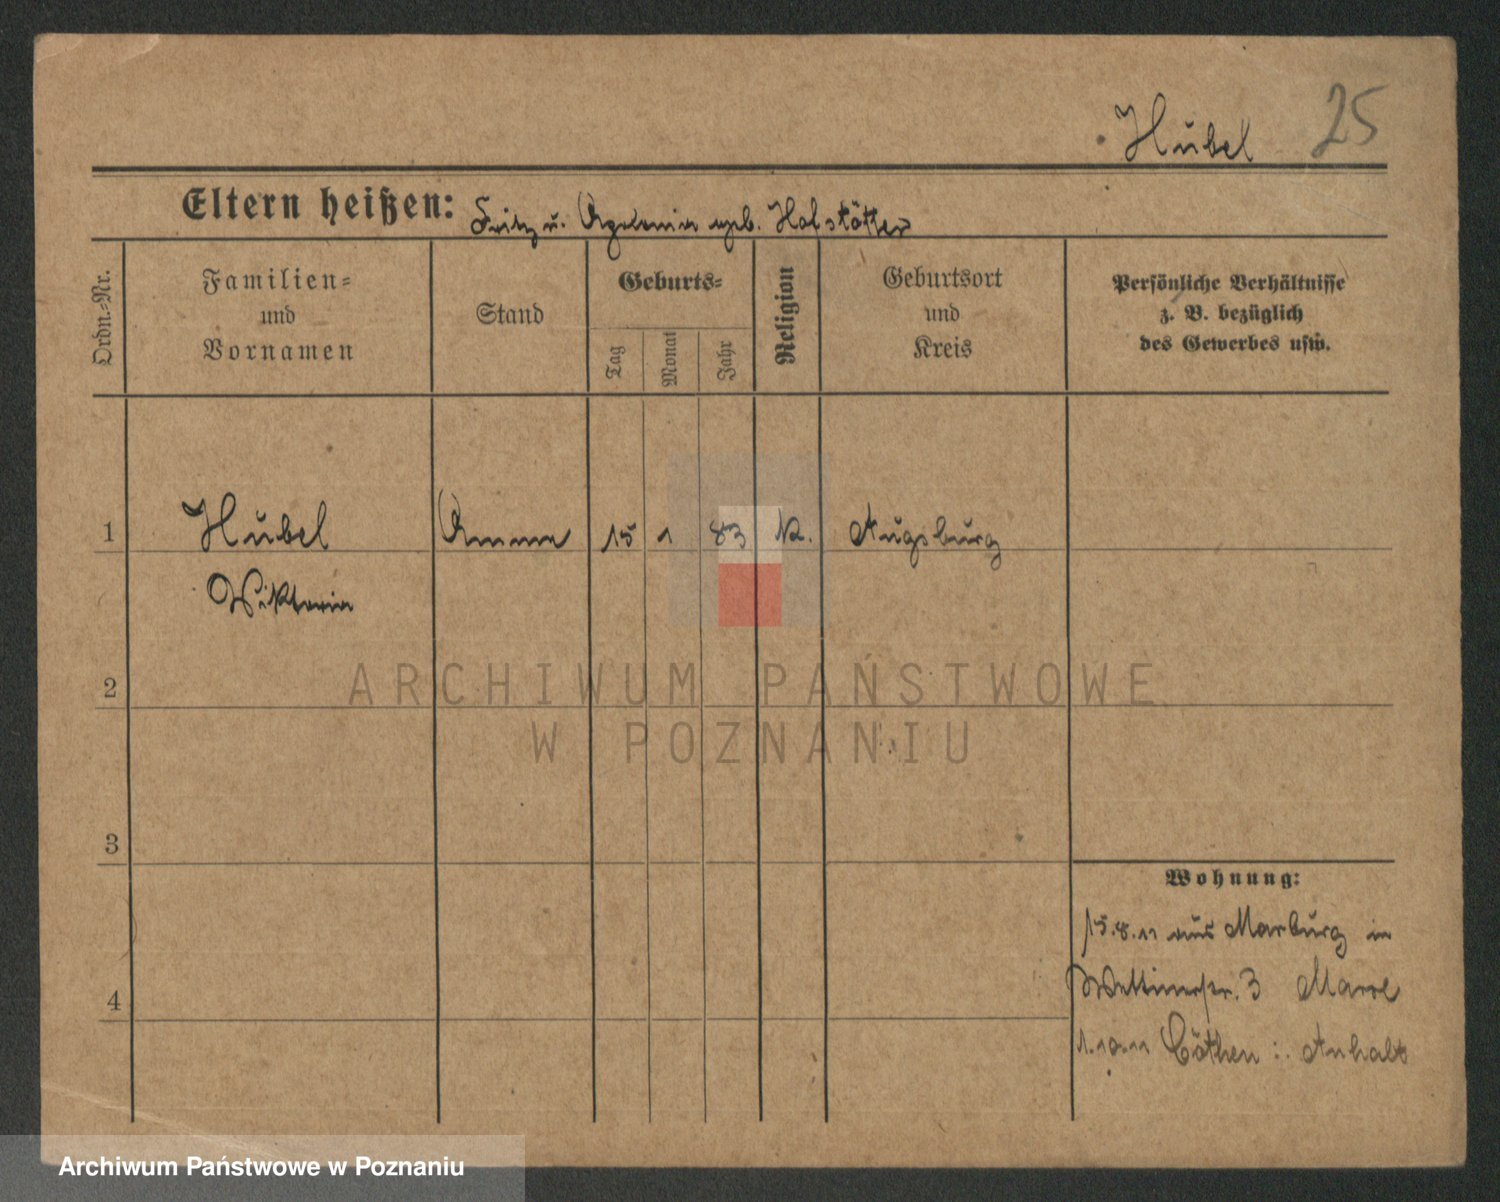 Hubel 25
Eltern heißen: Fritz u. Apolonia geb. Hofstötter
Ordn.-Nr.
Familien-
und
Vornamen
Stand
Geburts-
Tag
Monat
Jahr
Religion
Geburtsort
und
Kreis
Persönliche Verhältnisse
z. B. bezüglich
des Gewerbes usw.
1 Hubel Amme 15 1 83 K. Augsburg
Wiktoria
2
3
4
Wohnung:
15.8.11 aus Marburg in
Wettinerstr. 3
1.10.11 Cöthen i. Anhalt
ARCHIWUM PAŃSTWOWE
W POZNANIU
Archiwum Państwowe w Poznaniu